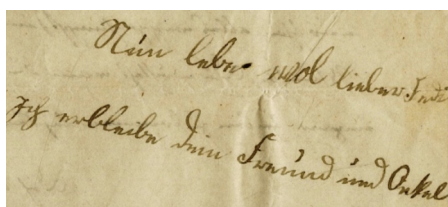 Nun lebe wol lieber
Ich erbleibe dein Freund und Onkel